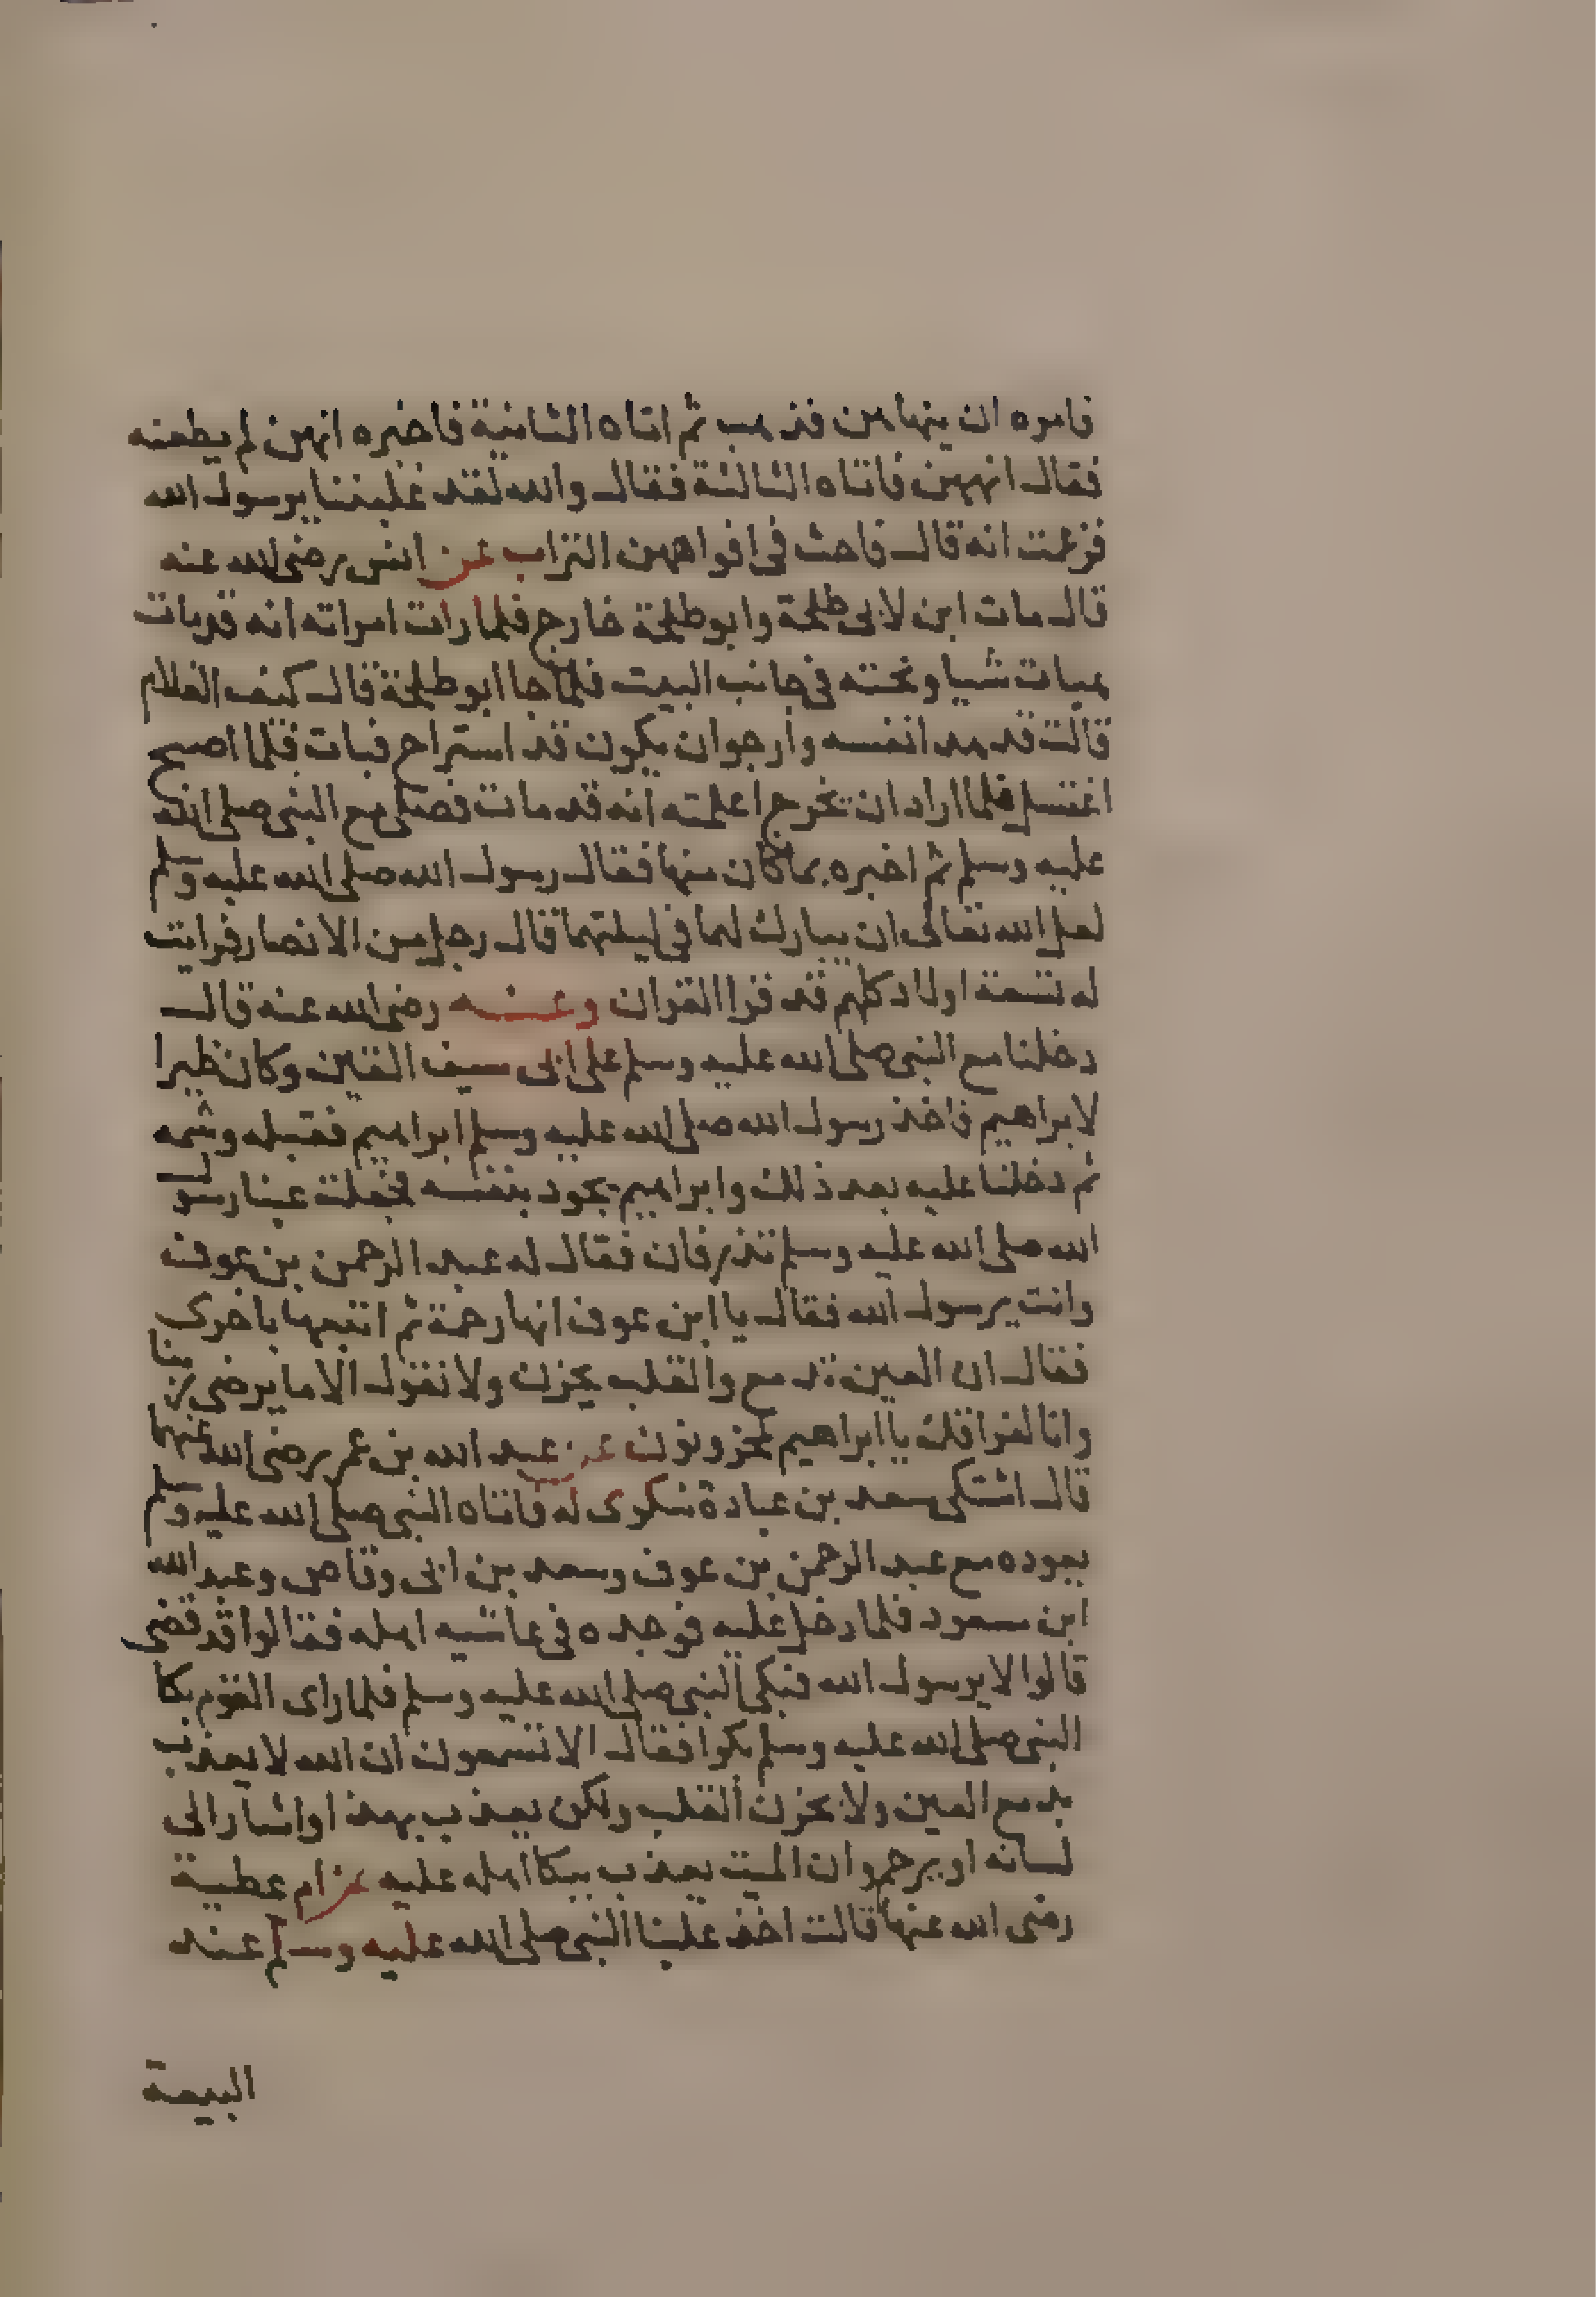 فامره ان ينهاهن فذهب ثم اتاه الثانية فاخبره انهن لم يطعنه
فقال انههن فاتاه الثالثة فقال والله لقد غلبننا يرسول الله
فزعمت انه قال فاحث في افواههن التراب عن انس رضى الله عنه
قال مات ابن لابى طلحة وابو طلحة خارج فلما رات امراته انه قد مات
هيات شيا ونحته في جانب البيت فلما جا ابو طلحة قال كيف الغلام
قالت قد هدا نفسه وارجو ان يكون قد استراح فبات فلما اصبح
اغتسل فلما اراد ان يخرج اعلمته انه قد مات فصلى مع النبى صلى الله
عليه وسلم ثم اخبره بما كان منها فقال رسول الله صلى الله عليه وسلم
لعل الله تعالى ان يبارك لهما في ليلتهما قال رجل من الانصار فرايت
له تسعة اولاد كلهم قد قرا القران وعنه رضى الله عنه قال
دخلنا مع النبى صلى الله عليه وسلم على ابى سيف القين وكان ظيرا
لابراهيم فاخذ رسول الله صلى الله عليه وسلم ابراهيم فقبله وشمه
ثم دخلنا عليه بعد ذلك وابراهيم يجود بنفسه فجعلت عينا رسول
الله صلى الله عليه وسلم تذرفان فقال له عبد الرحمن بن عوف
وانت يرسول الله فقال يا ابن عوف انها رحمة ثم اتبعها باخرى
فقال ان العين تدمع والقلب يحزن ولا نقول الا ما يرضى ربنا
وانا لفراقك يا ابراهيم لمحزونون عن عبد الله بن عمر رضى الله عنهما
قال اشتكى سعد بن عبادة شكوى له فاتاه النبى صلى الله عليه وسلم
يعوده مع عبد الرحمن بن عوف وسعد بن ابى وقاص وعبد الله
ابن مسعود فلما دخل عليه فوجده في غاشيه اهله فقالوا قد قضى
قالوا لا يرسول الله فبكى النبى صلى الله عليه وسلم فلما راى القوم بكا
النبى صلى الله عليه وسلم بكوا فقال الا تسمعون ان الله لا يعذب
بدمع العين ولا بحزن القلب ولكن يعذب بهذا واشار الى
لسانه او يرحم وان الميت يعذب ببكا اهله عليه عن ام عطية
رضى الله عنها قالت اخذ علينا النبى صلى الله عليه وسلم عند
البيعة